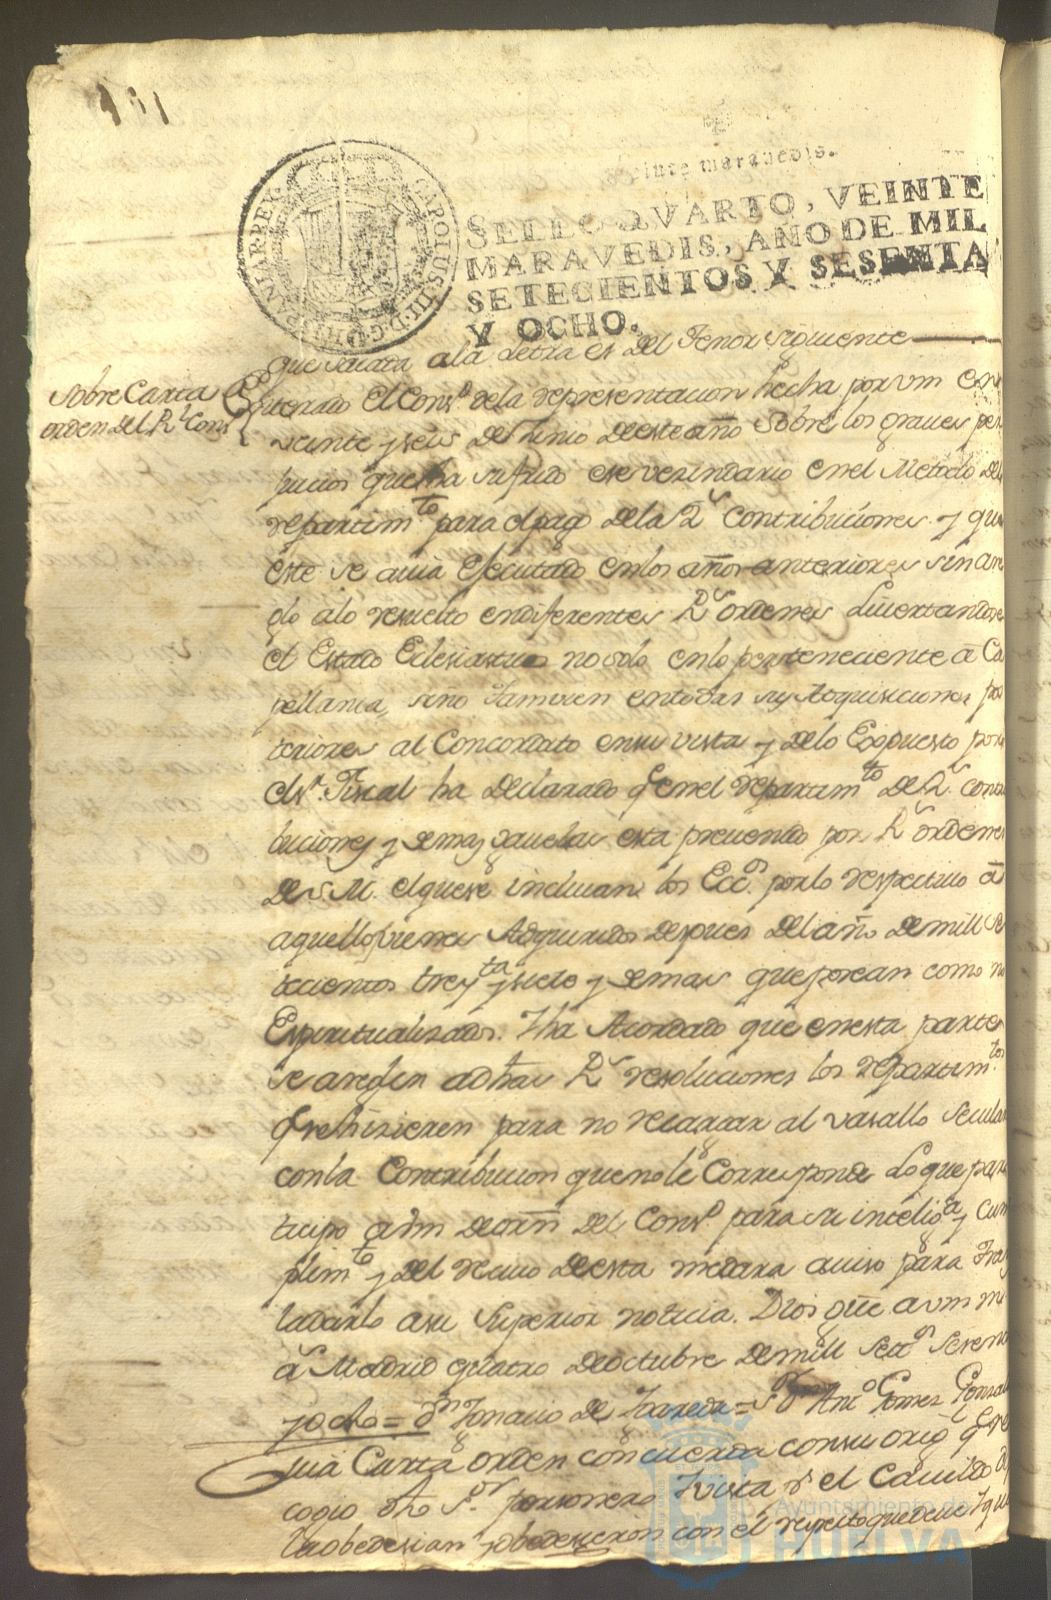 101
CAROLUS III D G HISPANIAR REX
Veinte maravedis.
SELLO QVARTO, VEINTE
MARAVEDIS, AÑO DE MIL
SETECIENTOS Y SESENTA
Y OCHO.
que sacata ala Letra es del Tenor siguiente
Sobre Carta
orden del Rl Consº
Enterado el Consº. dela representacion hecha por vm en
veinte y seis de Junio deeste año sobre los graves per
juicios que ha sufrido ese vezindario en el Metodo del
repartimto para el pago dela Rs contribuciones y que
este se avia ejecutado en los años anteriores sin arre
glo alo resuelto endiferentes Rs ordenes Livertandose
el Estado Eclesiastico no solo enlo perteneciente á Ca
pellania, sino Tamvien entodas sus Adquisiciones pos
teriores al Concordato ensu vista y delo Expuesto por
el sr. Fiscal ha declarado qe enel repartimto de Rs contri
buciones y demas gavelas esta prevenido por Rs ordenes
de S. M. el que se incluian los Eccos. por lo respectivo á
aquellos vienes Adquiridos despues del año de mill se
tecientos treynta y siete y demas que posean como no
Espiritualizados. Y ha Acordado que en esta parte
se areglen adhas Rs resoluciones los repartimtos
qe se hizieren para no recargar al vasallo secular
con la Contribucion que no le Corresponde Lo que par
ticipo avm de orñ del Consº para su inteliga y Cum
plimto y del recivo deesta medara aviso para Tras
ladarlo asu Superior noticia. Dios gue avm ms
as Madrid quatro de octubre de mill Setos sesenta
y ocho = Dn Ignacio de = sor Dn Anto Gomez Gonzal
cuia Carta orden concuerda con su orig qe Re
cogio dho sor. personero Y vista pr el Cavildo
la obedesian y obedesieron con el respeto que deve Y que
Ayuntamiento de
HUELVA